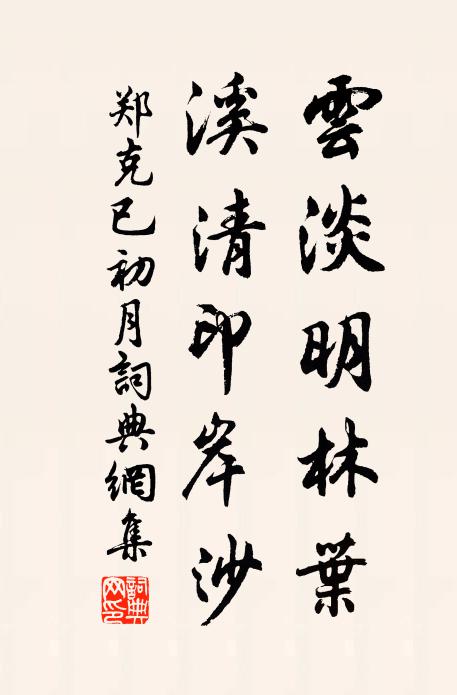 雲淡明林葉
溪清印岸沙
郑克已初月詞典網集
詞典网印